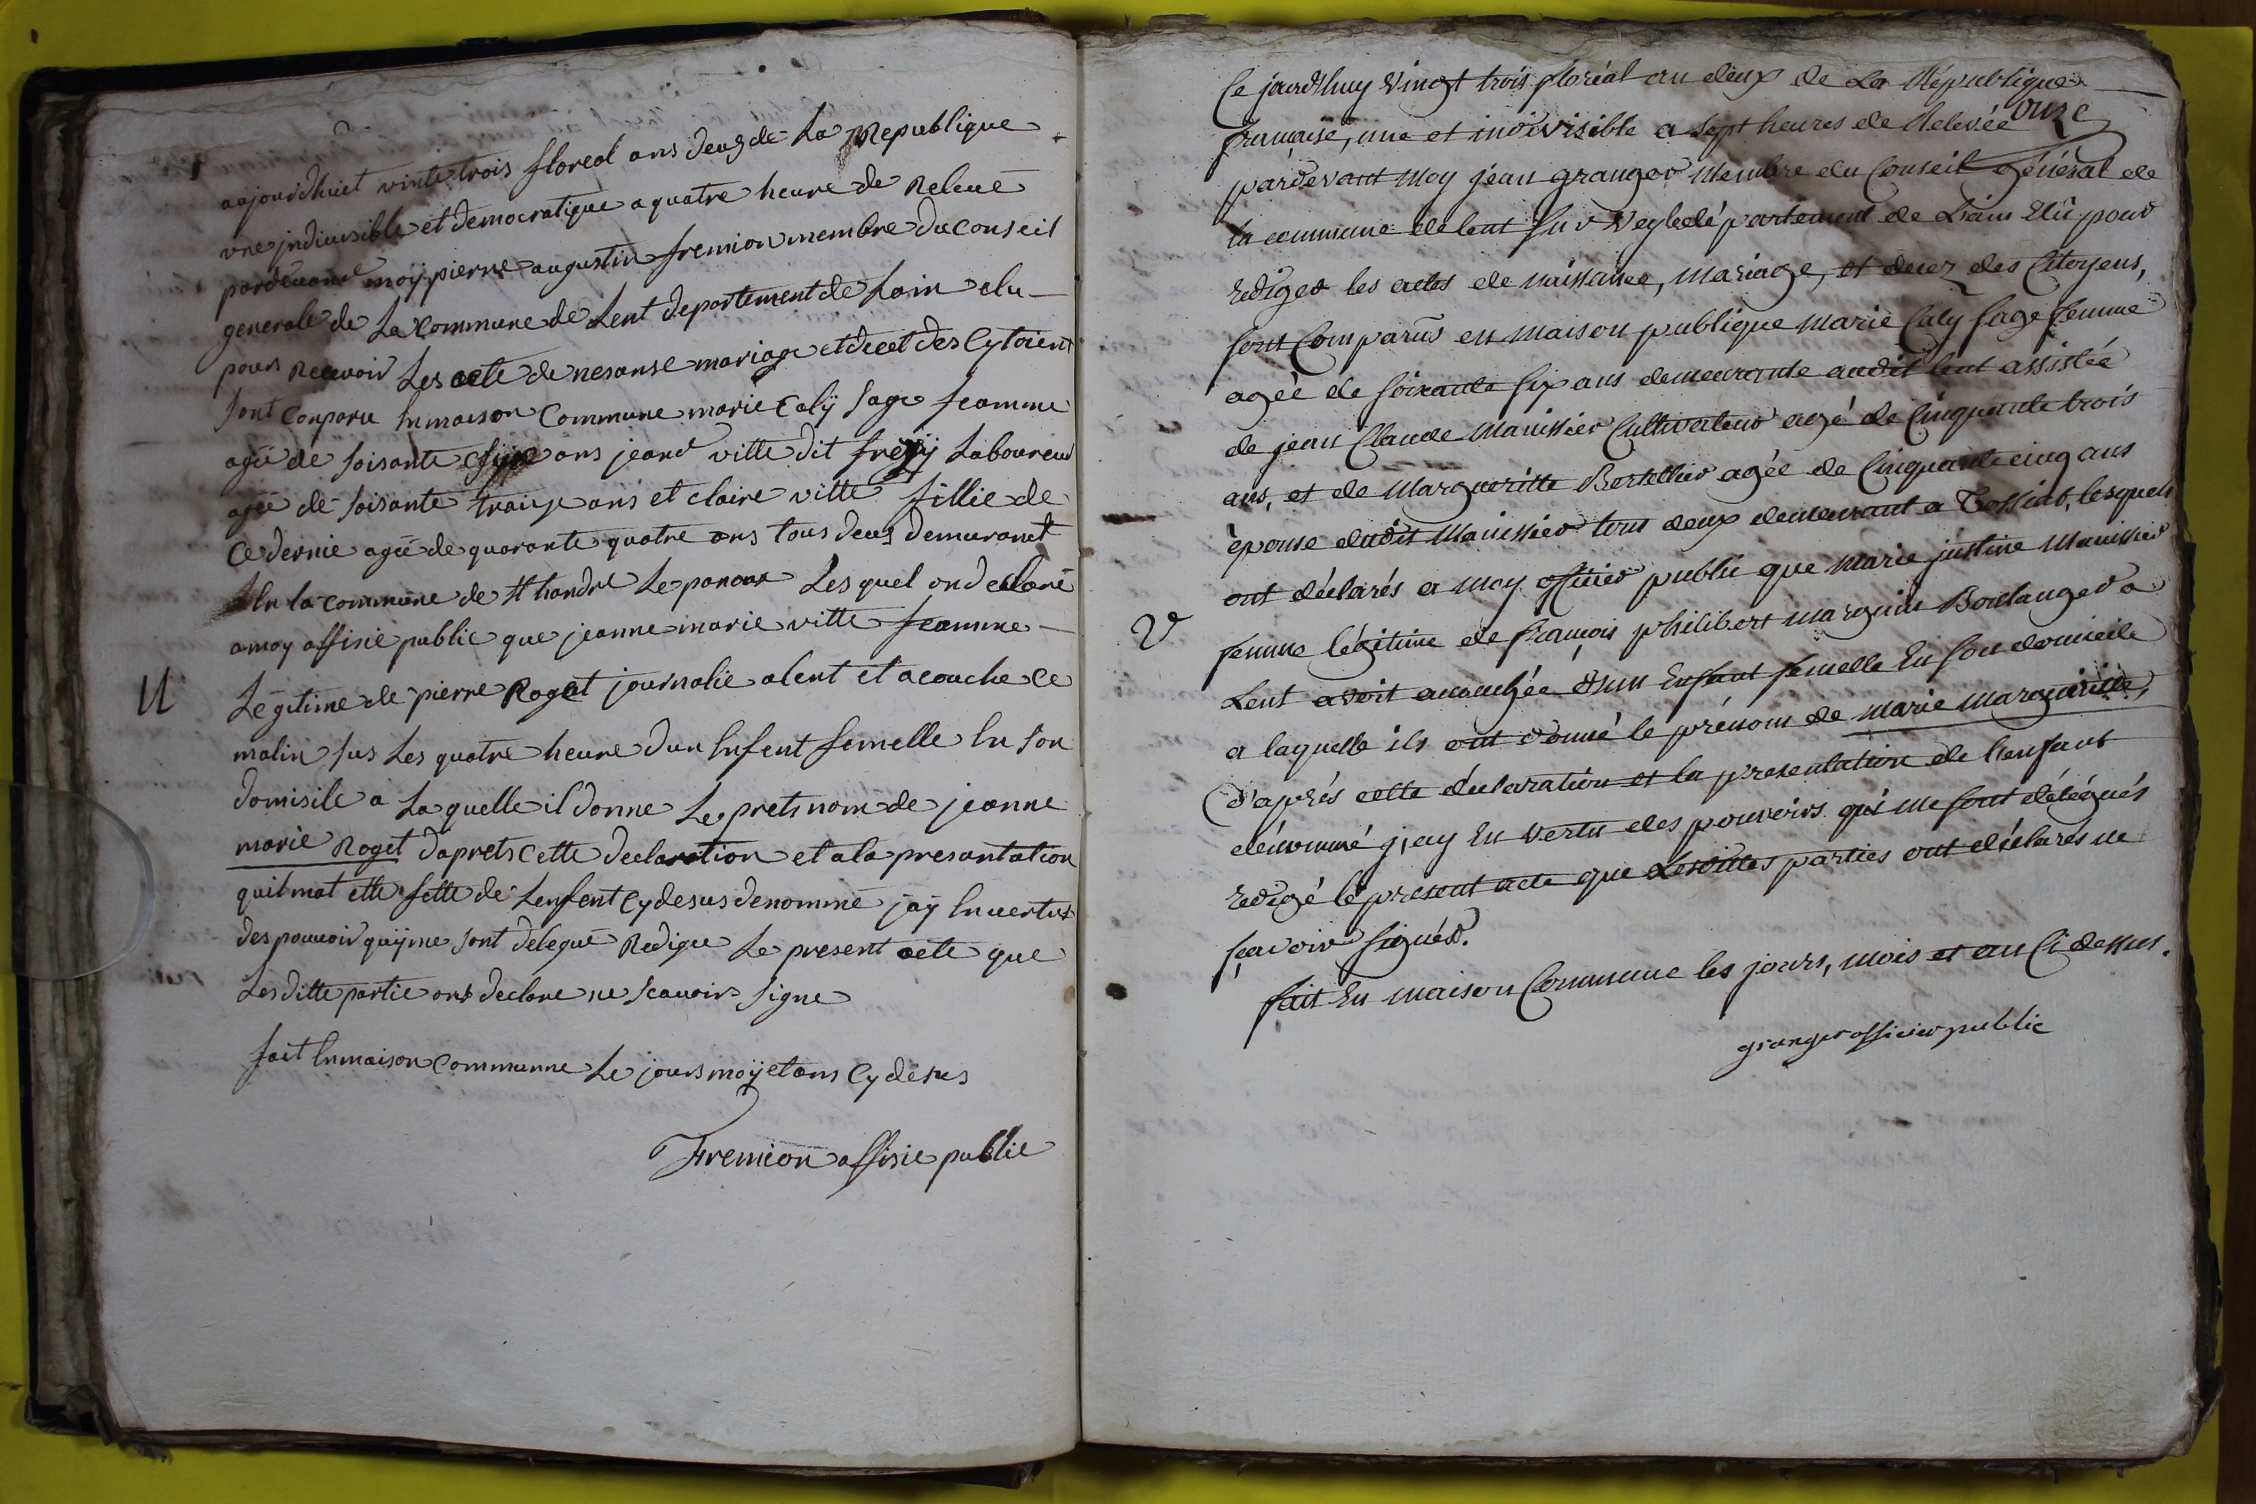 aujourdhuit vinte trois floreal ans deus de La Republique
vne jndiuisible et democratique a quatre heure de Releué
pardeuant moÿ pierre augustin fremion membre du conseil
generale de La Commune de Lent departement de Lain elu
pours Receuoir Les acte de nesanse mariage et decet des Cytoient
sont Conparu En maison Commune marie Calÿ sage feamme
agée de soisante ans jeand vitte dit Laboureur
agée de soisante traize ans et claire vitte fillie de
Ce dernie agée de quarante quatre ans tous deus demurant
En la commune de st handre Le panoux Les quel on declare
a moy offisie public que jeanne marie vitte feamme
U
Légitime de pierre Roget journalie a lent et acouche ce
matin sus Les quatre heure dun Enfent femelle En son
domisile a La quelle il donne Le prets nom de jeanne
marie Roget daprets Cette declaration et a la presantation
quil mat ette fette de Lenfent Cy desus denommé jaÿ En uertus
des pouuoir quÿ me sont delegué Redigee Le present acte que
Les ditte partie ont declare ne scauoir signe
fait En maison Commune Le jours moÿ et ans Cy desus
Fremion offisie public
Ce jourd'huy Vingt trois floréal an deux de La République
française, une et indivisible a sept heures de Relevée onze
pardevant Moy jean granger Membre du Conseil général de
la commune de lent sur Veyle département de Lain Elû pour
rediger les actes de naissance, mariage, et decez des Citoyens,
sont Comparûs en maison publique marie Caly sage femme
agée de soixante six ans demeurante audit lent assistée
de jean Claude Manissier Cultivateur agé de Cinquante trois
ans, et de Margueritte Bertethier agée de Cinquante cinq ans
epouse dudit Manissier tous deux demeurant a Tossiat, lesquels
ont déclarés a moy officier public que Marie justine Manissier
V
femme légitime de françois philibert marguin Boulanger a
Lent avoit accouchée d'un Enfant femelle En son domicile
a laquelle ils ont donné le prénom de marie margueritte,
d'après cette déclaration et la presentation de l'enfant
dénommé j'ay En vertu des pouvoirs qui me sont délégués
redigé le present acte que Lesdittes parties ont déclarés ne
sçavoir signér.
fait En maison Commune les jours, mois et an Ci dessus.
granger officier public